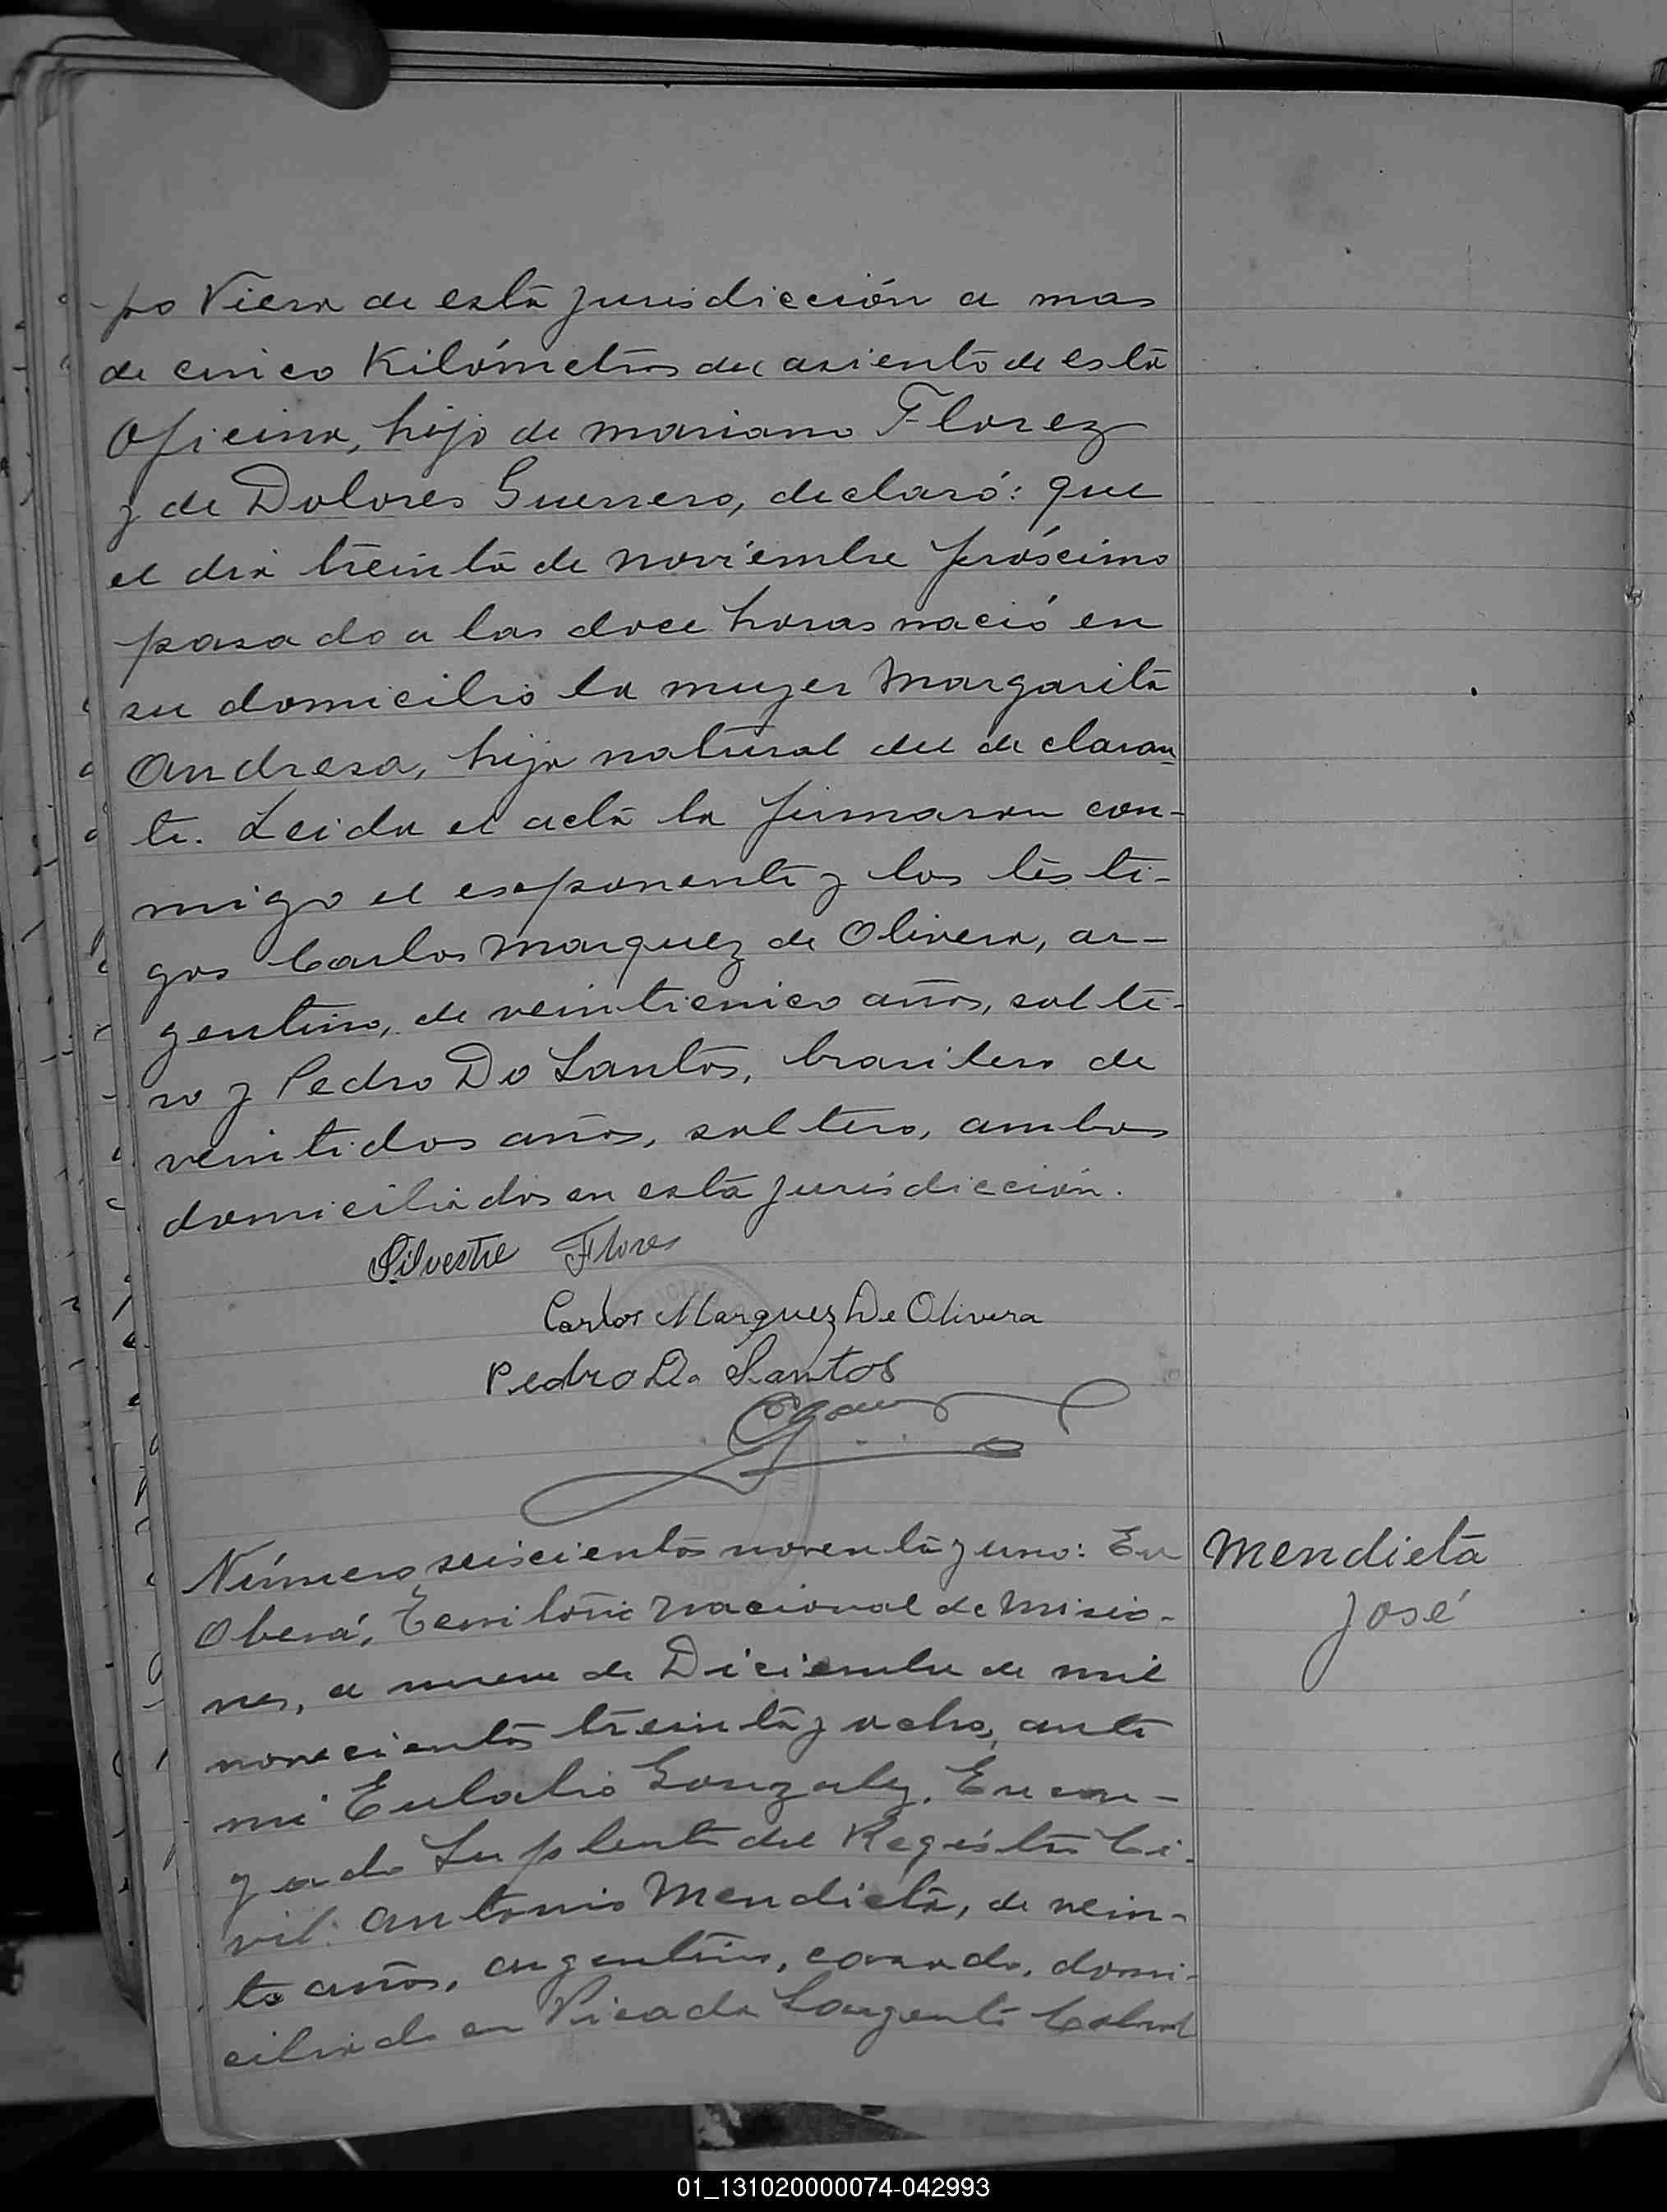 po Viera de esta jurisdicción a mas
de cinco Kilómetros del asiento de esta
Oficina, hijo de mariano Florez
y de Dolores Guerrero, declaró: que
el dia treinta de noviembre próscimo
pasado a las doce horas nació en
su domicilio la mujer Margarita
Andresa, hija natural del declaran
te. Leida el acta la firmaron con-
migo el esponente y los testi-
gos Carlos Marquez de Olivera, ar-
gentino, de veinticinco años, solte-
ro y Pedro Do Santos, brasilero de
veintidos años, soltero, ambos
domiciliados en esta jurisdicción.
Silvestre Flores
Carlos Marquez De Olivera
Pedro Do Santos
Número seiscientos noventa y uno: En
Oberá, Territorio Nacional de Misio-
nes, a nueve de Diciembre de mil
novecientos treinta y ocho, ante
mi Eulalio Gonzalez, Encar-
gado Suplente del Registro Ci-
vil: Antonio Mendieta, de vein-
te años, argentino, casado, domi-
ciliado en Picada Sargento Cabral
Mendieta
José
01_131020000074-042993